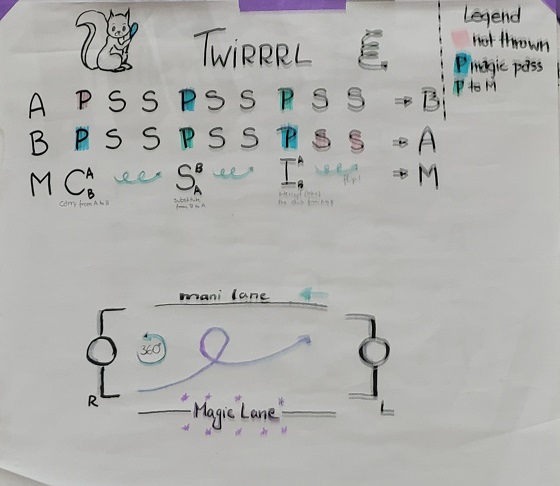 Legend
not thrown
P magic pass
P to M
TWIRRRL
A P S S P S S P S S ⇒ B
B P S S P S S P S S ⇒ A
M C A B S B A I A B ⇒ M
carry from A to B
substitute from B to A
mani lane
360°
R
Magic Lane
L